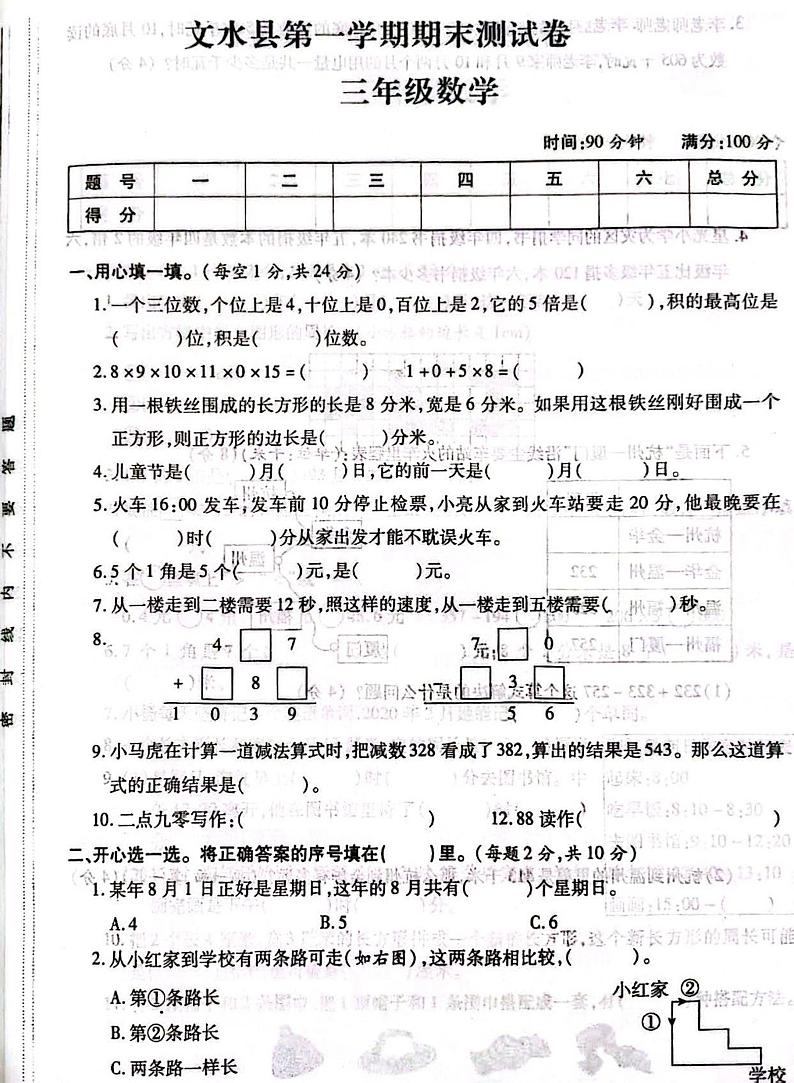 文水县第一学期期末测试卷
三年级数学
时间:90 分钟 满分:100 分
题号 一 二 三 四 五 六 总分
得分
一、用心填一填。(每空 1 分,共 24 分)
1.一个三位数,个位上是 4,十位上是 0,百位上是 2,它的 5 倍是( ),积的最高位是
( )位,积是( )位数。
2.8×9×10×11×0×15=( ) 1+0+5×8=( )
3.用一根铁丝围成的长方形的长是 8 分米,宽是 6 分米。如果用这根铁丝刚好围成一个
正方形,则正方形的边长是( )分米。
4.儿童节是( )月( )日,它的前一天是( )月( )日。
5.火车 16:00 发车,发车前 10 分停止检票,小亮从家到火车站要走 20 分,他最晚要在
( )时( )分从家出发才能不耽误火车。
6.5 个 1 角是 5 个( )元,是( )元。
7.从一楼走到二楼需要 12 秒,照这样的速度,从一楼走到五楼需要( )秒。
8.
4 □ 7 7 □ 0
+ □ 8 □ - □ 3 □
1 0 3 9 5 6
9.小马虎在计算一道减法算式时,把减数 328 看成了 382,算出的结果是 543。那么这道算
式的正确结果是( )。
10.二点九零写作:( ) 12.88 读作( )
二、开心选一选。将正确答案的序号填在( )里。(每题 2 分,共 10 分)
1.某年 8 月 1 日正好是星期日,这年的 8 月共有( )个星期日。
A.4 B.5 C.6
2.从小红家到学校有两条路可走(如右图),这两条路相比较,( )。
A.第①条路长
B.第②条路长
C.两条路一样长
小红家 ②
①
学校
密封线内不要答题